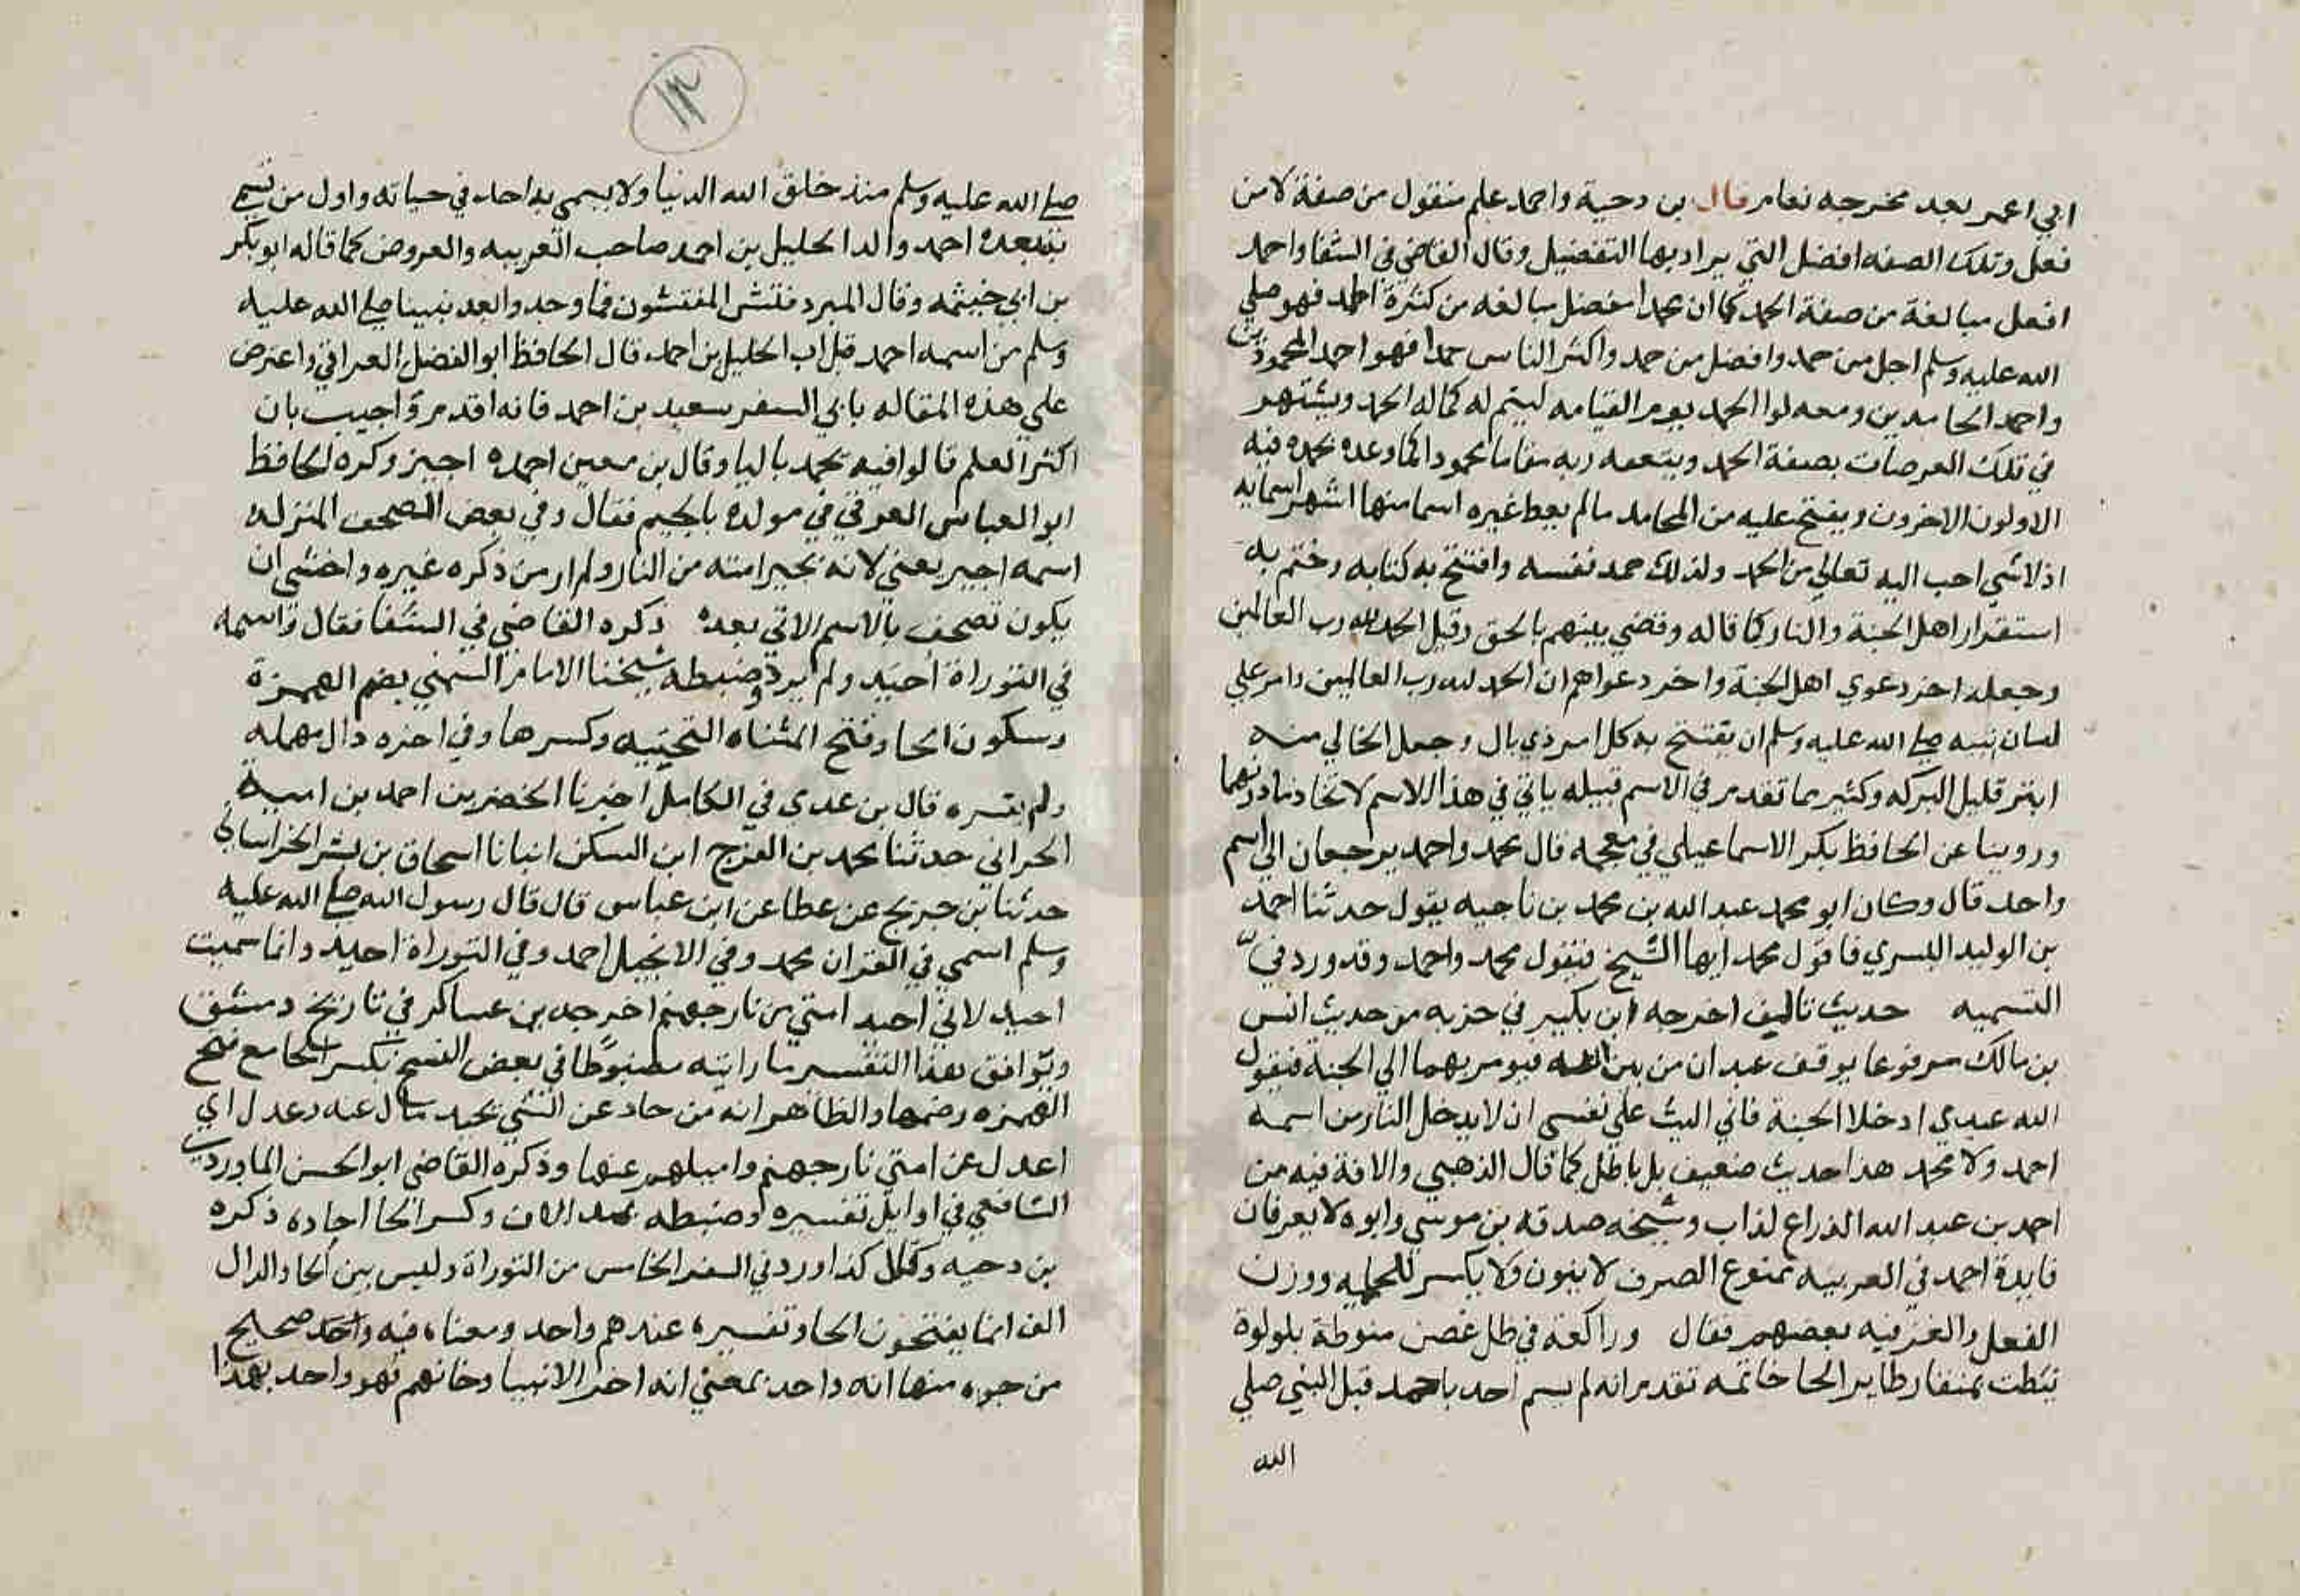 ابي اعمر بعد مخرجه نعام قال بن دحية واحمد علم منقول من صفة لا من
فعل وتلك الصفه افضل التي يراد بها التفضيل وقال القاضي في الشفا واحمد
افعل مبالغة من صفة الحمد كما ان محمدا مفضل مبالغه من كثرة الحمد فهو صلي
الله عليه وسلم اجل من حمد وافضل من حمد واكثر الناس حمدا فهو احمد المحمودين
واحمد الحامدين ومعه لوا الحمد يوم القيامه ليتم له كماله الحمد ويشتهر
في تلك العرصات بصفة الحمد ويبعثه ربه مقاما محمودا كما وعده يحمده فيه
الاولون الاخرون ويفتح عليه من المحامد مالم يعط غيره اسما منها اشهر اسمايه
اذ لا شي احب اليه تعالي من الحمد ولذلك حمد نفسه وافتتح به كتابه وختم به
استقرار اهل الجنة والنار كما قاله وقضي بينهم بالحق وقيل الحمد لله رب العالمين
وجعله اخر دعوي اهل الجنة واخر دعواهم ان الحمد لله رب العالمين وامر علي
لسان نبيه صلي الله عليه وسلم ان يفتتح به كل امر ذي بال وجعل الخالي منه
ابتر قليل البركه وكثير مما تقدم في الاسم قبيله ياتي في هذا الاسم لاتحاد مادتهما
وروينا عن الحافظ بكر الاسماعيلي في معجمه قال محمد واحمد يرجعان الي اسم
واحد قال وكان ابو محمد عبد الله بن محمد بن ناجيه يقول حدثنا احمد
بن الوليد البسري فاقول محمد ايها الشيخ فيقول محمد واحمد وقد ورد في
التسميه حديث تاليف اخرجه ابن بكير في حزبه من حديث انس
بن مالك مرفوعا يوقف عبدان من بين الله فيومر بهما الي الجنة فيقول
الله عبدي ادخلا الجنة فاني اليث علي نفسي ان لا يدخل النار من اسمه
احمد ولا محمد هذا حديث ضعيف بل باطل كما قال الذهبي والافة فيه من
احمد بن عبد الله الذراع لذاب وشيخه صدقه بن موسي وابوه لا يعرفان
فايدة احمد في العربيه ممنوع الصرف لا ينون ولا يكسر للعلميه ووزن
الفعل والغز فيه بعضهم فقال وراكعة في ظل غصن منوطة بلولوة
نيطت بمنقار طاير الحا خاتمه تقدم انه لم يسم احد باحمد قبل النبي صلي
الله
١٢
صلي الله عليه وسلم منذ خلق الله الدنيا ولا يسمي به احد في حياته واول من تسمي
به بعده احمد والد الخليل بن احمد صاحب العربيه والعروض كما قاله ابو بكر
بن ابي خيثمه وقال المبرد فتش المفتشون فما وجدوا بعد نبينا صلي الله عليه
وسلم من اسمه احمد قبل اب الخليل بن احمد قال الحافظ ابو الفضل العراقي واعترض
علي هذه المقاله بابي السفر سعيد بن احمد فانه اقدم واجيب بان
اكثر العلم قالوا فيه يحمد باليا وقال بن معين احمده اجيز وكره لحافظ
ابو العباس العزفي في مولده بالجيم فقال وفي بعض الصحف المنزله
اسمه اجير يعني لانه يجير امته من النار ولم ار من ذكره غيره واخشى ان
يكون تصحف بالاسم الاتي بعده ذكره القاضي في الشفا فقال واسمه
في التوراة أحيَد ولم يرد وضبطه شيخنا الامام الشمني بضم الهمزة
وسكون الحا وفتح المثناه التحتيه وكسرها وفي اخره دال مهمله
ولم يفسره قال بن عدي في الكامل اخبرنا الخضر بن احمد بن امية
الحراني حدثنا محمد بن الفرج ابن السكن انبانا اسحاق بن بشر الخراساني
حدثنا بن جريج عن عطا عن ابن عباس قال قال رسول الله صلي الله عليه
وسلم اسمي في القران محمد وفي الانجيل احمد وفي التوراة احيد وانما سميت
احيد لاني احيد امتي من نار جهنم اخرجه بن عساكر في تاريخ دمشق
ويوافق هذا التفسير ما رايته مضبوطا في بعض النسخ بكسر الحا مع فتح
الهمزه وضمها والظاهر انه من حاد عن الشي يحيد مال عنه وعدل اي
اعدل عن امتي نار جهنم واميلهم عنها وذكره القاضي ابو الحسن الماوردي
الشافعي في اوايل تفسيره وضبطه بمد الالف وكسر الحا اجاده ذكره
بن دحيه وقال كذا ورد في السفر الخامس من التوراة وليس بين الحا والدال
الف انما يفتحون الحا وتفسيره عندهم واحد ومعناه فيه واحد صحيح
من جوه منها انه واحد بمعني انه اخر الانبيا وخاتهم فهو واحد بهذا